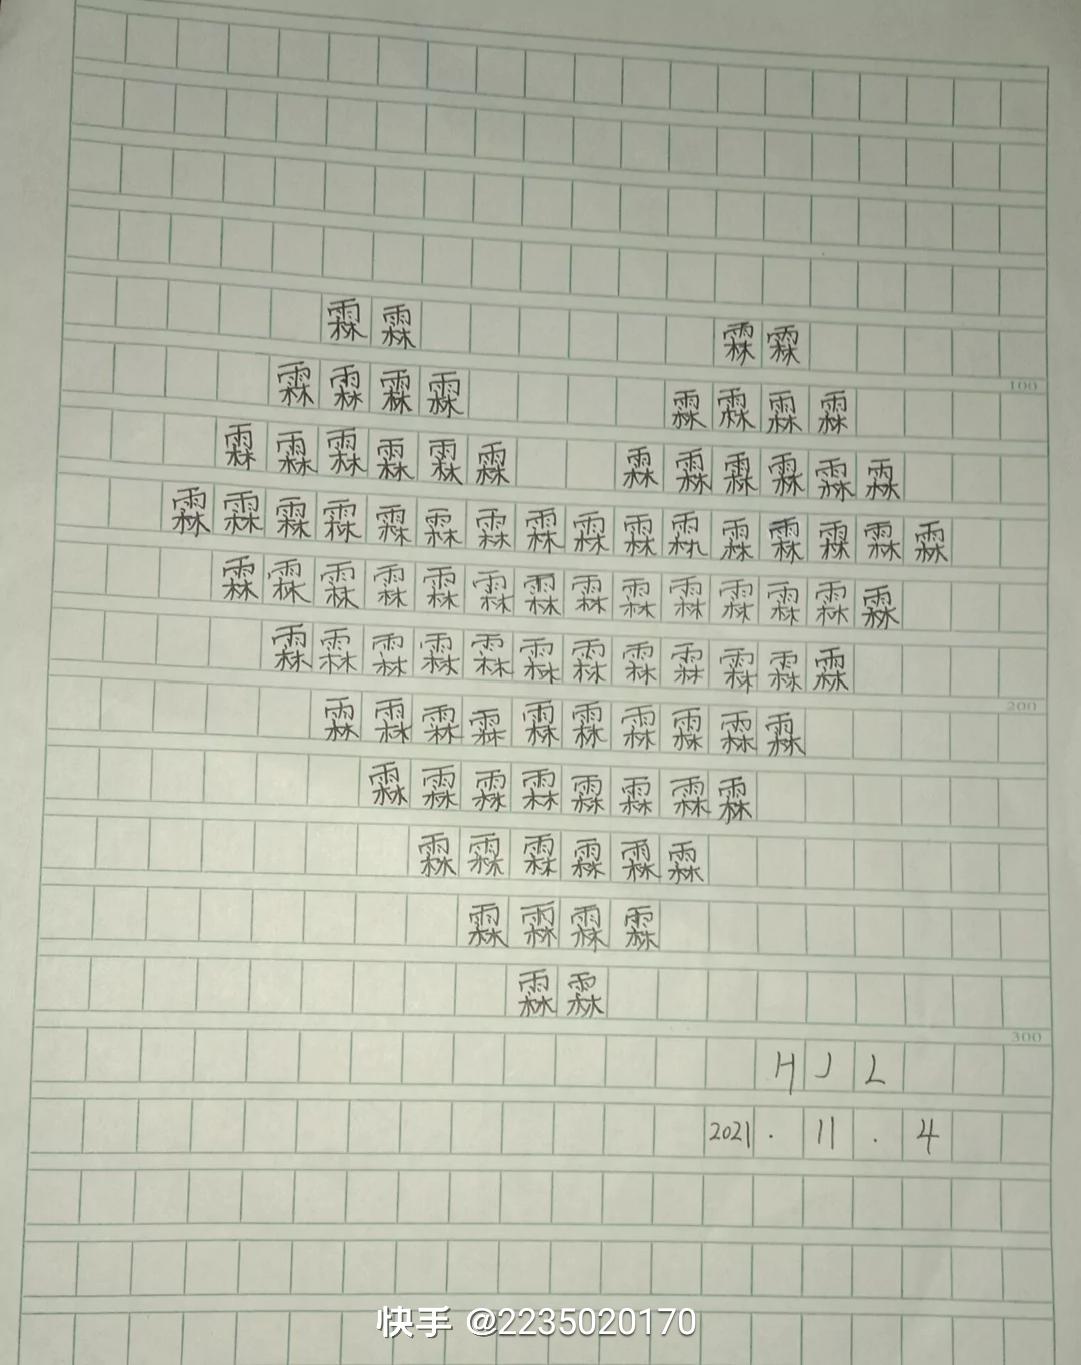 霖霖 霖霖
霖霖霖霖 霖霖霖霖
100
霖霖霖霖霖霖 霖霖霖霖霖霖
霖霖霖霖霖霖霖霖霖霖霖霖霖霖霖霖
霖霖霖霖霖霖霖霖霖霖霖霖霖霖
霖霖霖霖霖霖霖霖霖霖霖霖
200
霖霖霖霖霖霖霖霖霖霖
霖霖霖霖霖霖霖霖
霖霖霖霖霖霖
霖霖霖霖
霖霖
300
HJL
2021.11.4
快手 @2235020170